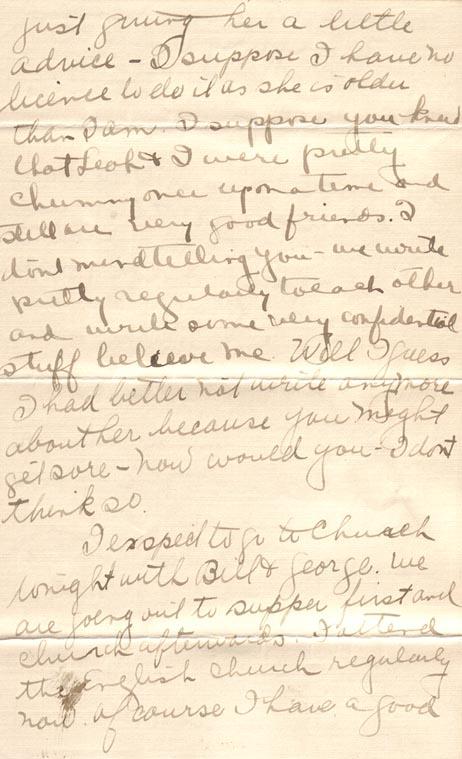 just giving her a little
advice - I suppose I have no
licence to do it as she is older
than I am. I suppose you knew
that Leah & I were pretty
chummy once upon a time and
still are very good friends. I
dont mind telling you - we write
pretty regularly to each other
and write some very confidential
stuff believe me. Well I guess
I had better not write anymore
about her because you might
get sore - now would you - I dont
think so.
I expect to go to Church
tonight with Bill & George. We
are going out to supper first and
church afterwards. I attend
the English church regularly
now. Of course I have a good